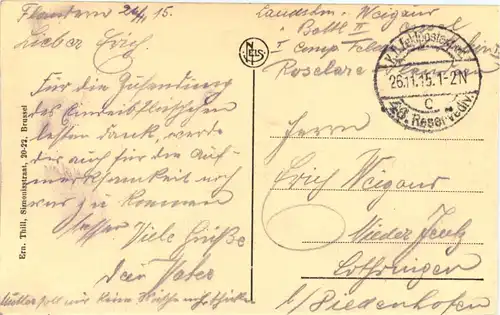 Flandern 26/11. 15.
Lieber Erich
Für die Zusendung
des
besten Dank, werde
dir auch für die Auf-
merksamkeit noch
was zu kommen
lassen. Viele Grüße
Dein Vater
Mutter soll mir keine mehr schicken
Ern. Thill, Simonisstraat, 20-22, Brussel
NELS
Landstm. Weigand
Battl II
Roselare
K.D. Feldpoststation
26.11.15. 1-2N
c
Reservediv.
Herrn
Erich Weigand
Nieder Jeutz
Lothringen
b/ Diedenhofen